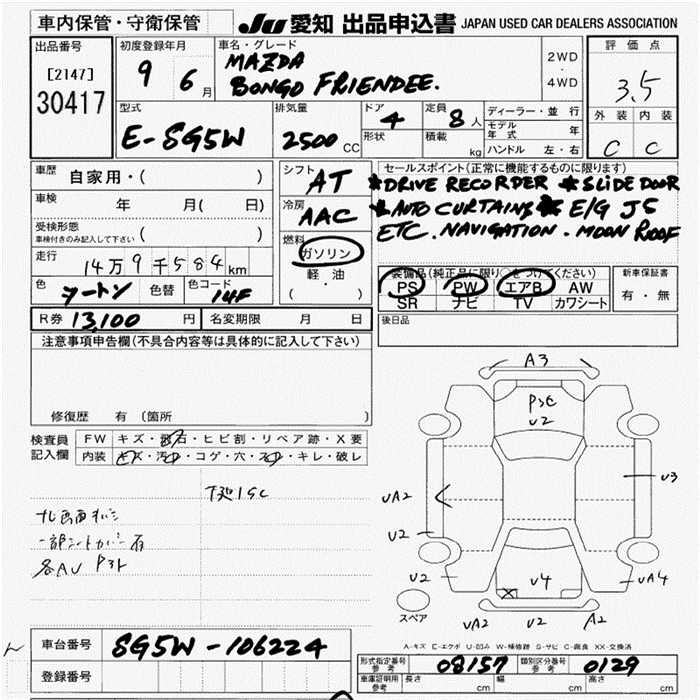 車内保管・守衛保管
JU 愛知 出品申込書 JAPAN USED CAR DEALERS ASSOCIATION
出品番号
[2147]
30417
初度登録年月
9 年 6 月
車名・グレード
MAZDA
BONGO FRIENDEE.
2WD
・
4WD
評価点
3.5
外装 内装
C C
型式
E-SG5W
排気量
2500 CC
ドア
4
形状
定員
8 人
積載
kg
ディーラー・並行
モデル年式 年
ハンドル 左・右
車歴
自家用・( )
車検
年 月( 日)
受検形態
車検付きのみ記入して下さい ( )
走行
14万9千584km
色
ツートン
色替
色コード
14F
シフト
AT
冷房
AAC
燃料
ガソリン
軽・油
( )
セールスポイント(正常に機能するものに限ります)
*DRIVE RECORDER *SLIDE DOOR
*AUTO CURTAINS * E/G J5
ETC. NAVIGATION. MOON ROOF
装備品(純正品に限り○をつけてください)
PS PW エアB AW
SR ナビ TV カワシート
新車保証書
有・無
R券 13,100 円
名変期限 月 日
後日品
注意事項申告欄(不具合内容等は具体的に記入して下さい)
修復歴 有(箇所 )
検査員
記入欄
FW キズ・飛石・ヒビ割・リペア跡・X要
内装 キズ・汚れ・コゲ・穴・スレ・キレ・破レ
A3
U2
UA2
U3
U2
U2
U4
UA4
X
UA2 U2 A2
スペア
A-キズ E-エクボ U-凹み W-補修跡 S-サビ C-腐食 XX-交換済
車台番号 SG5W-106224
登録番号
形式指定番号
参考
08157
類別区分番号
参考
0129
車庫証明用
参考
長さ cm 幅 cm 高さ cm